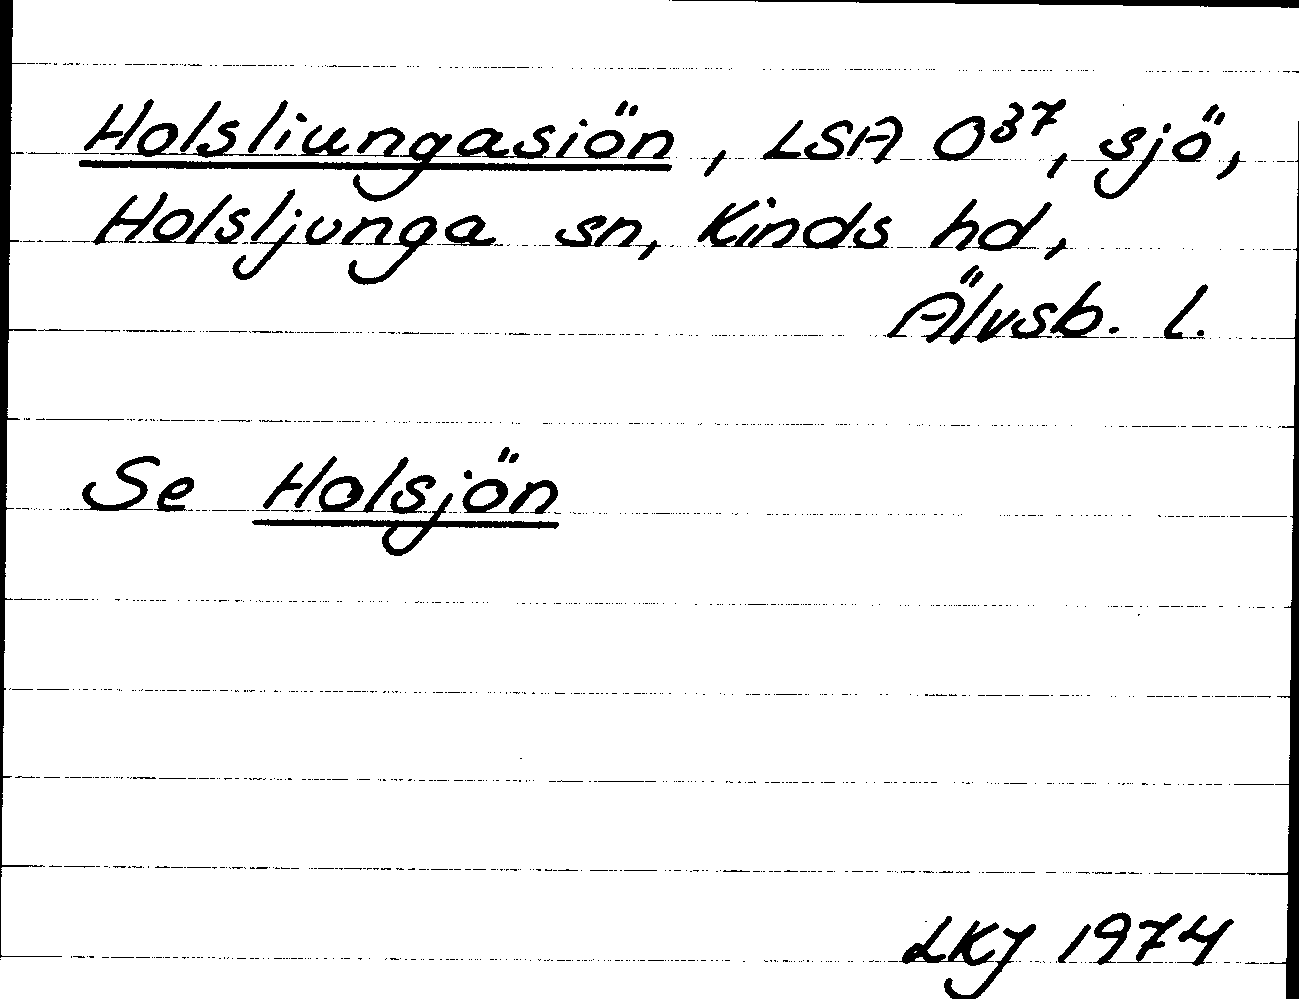 Holsliungasiön, LSA O³⁷, sjö,
Holsljunga sn, Kinds hd,
Älvsb. l.
Se Holsjön
LKJ 1974